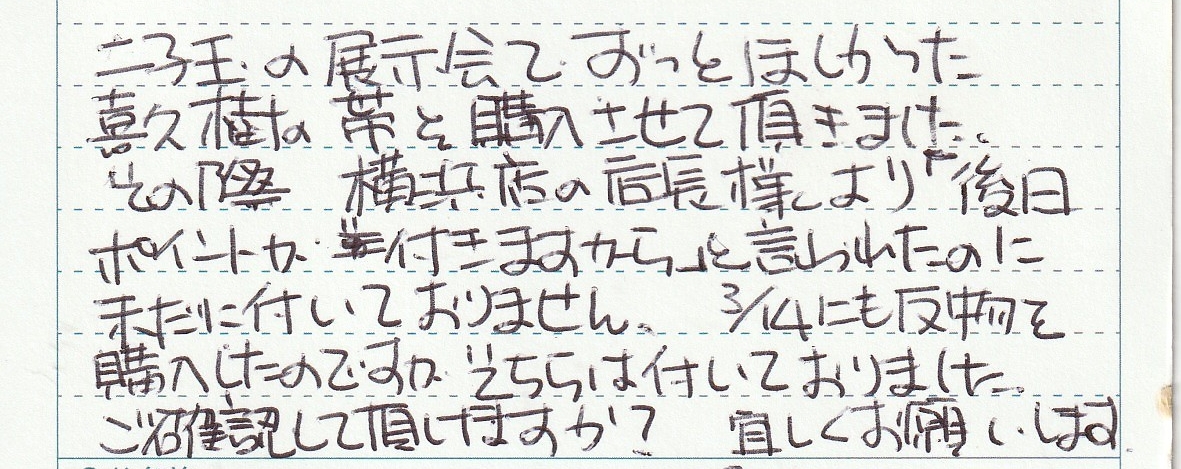 二子玉の展示会でずっとほしかった
喜久樹な帯を購入させて頂きました。
その際 横浜店の店長様より「後日
ポイントが付きますから」と言われたのに
未だに付いておりません。 3/14にも反物を
購入したのですがそちらは付いておりました。
ご確認して頂けますか? 宜しくお願いします